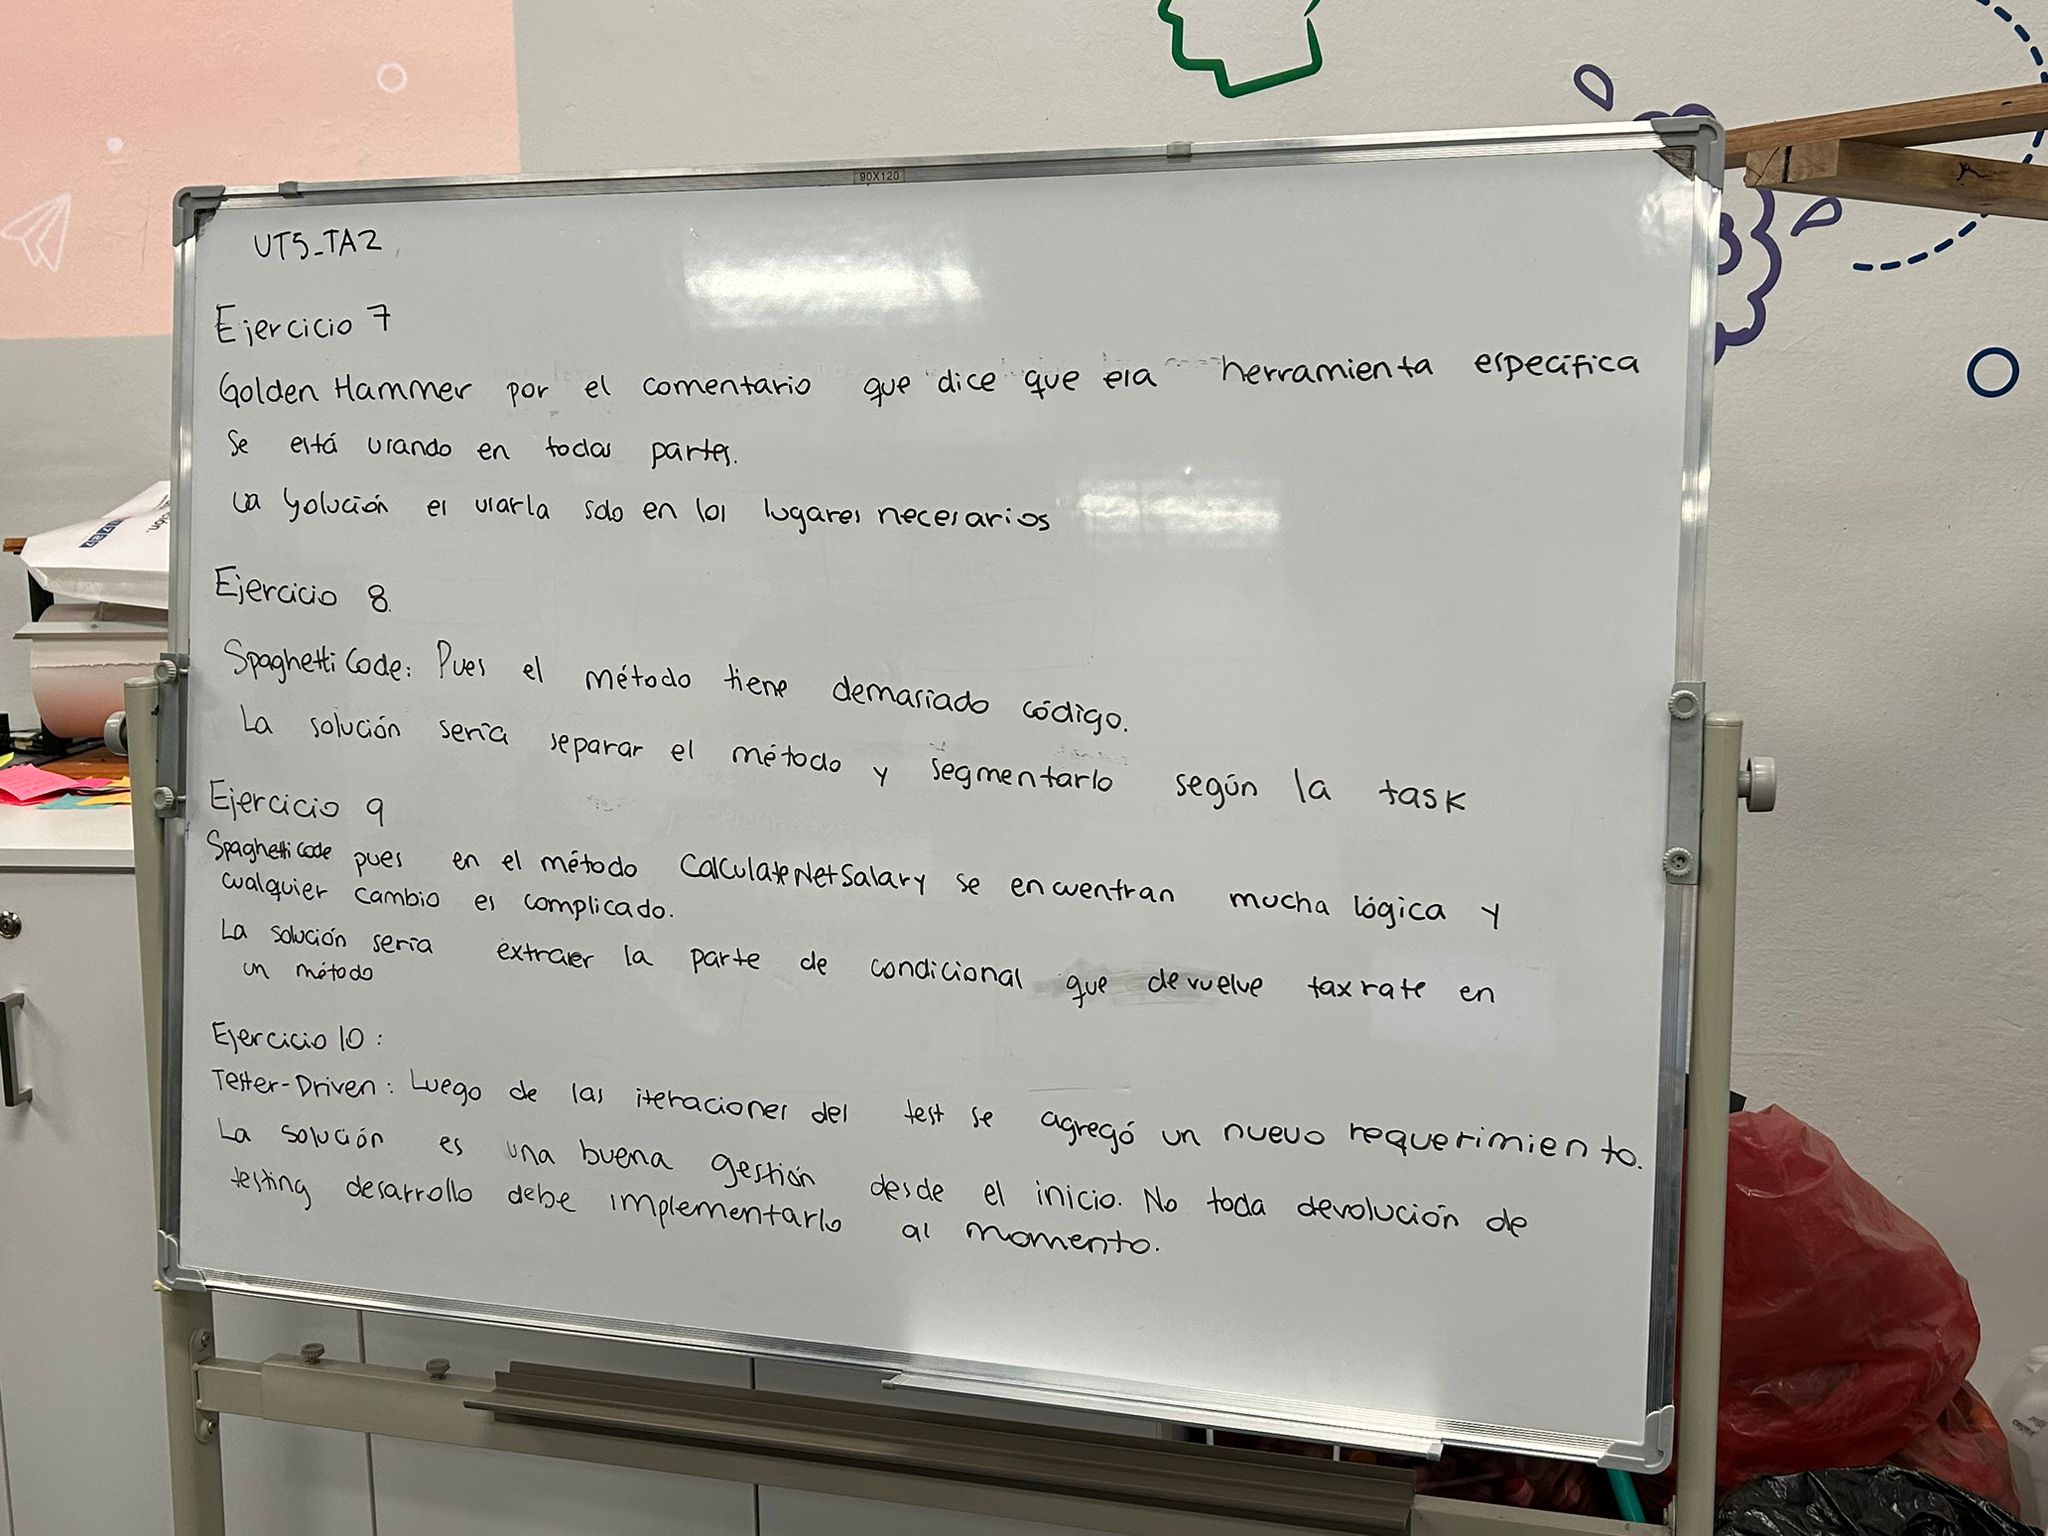 90X120
UT5_TA2
Ejercicio 7
Golden Hammer por el comentario que dice que esa herramienta específica
se está usando en todas partes.
La solución es usarla solo en los lugares necesarios
Ejercicio 8
Spaghetti Code: Pues el método tiene demasiado código.
La solución sería separar el método y segmentarlo según la task
Ejercicio 9
Spaghetti Code pues en el método CalculateNetSalary se encuentran mucha lógica y
cualquier cambio es complicado.
La solución sería extraer la parte de condicional que devuelve taxrate en
un método
Ejercicio 10:
Tester-Driven: Luego de las iteraciones del test se agregó un nuevo requerimiento.
La solución es una buena gestión desde el inicio. No toda devolución de
testing desarrollo debe implementarlo al momento.